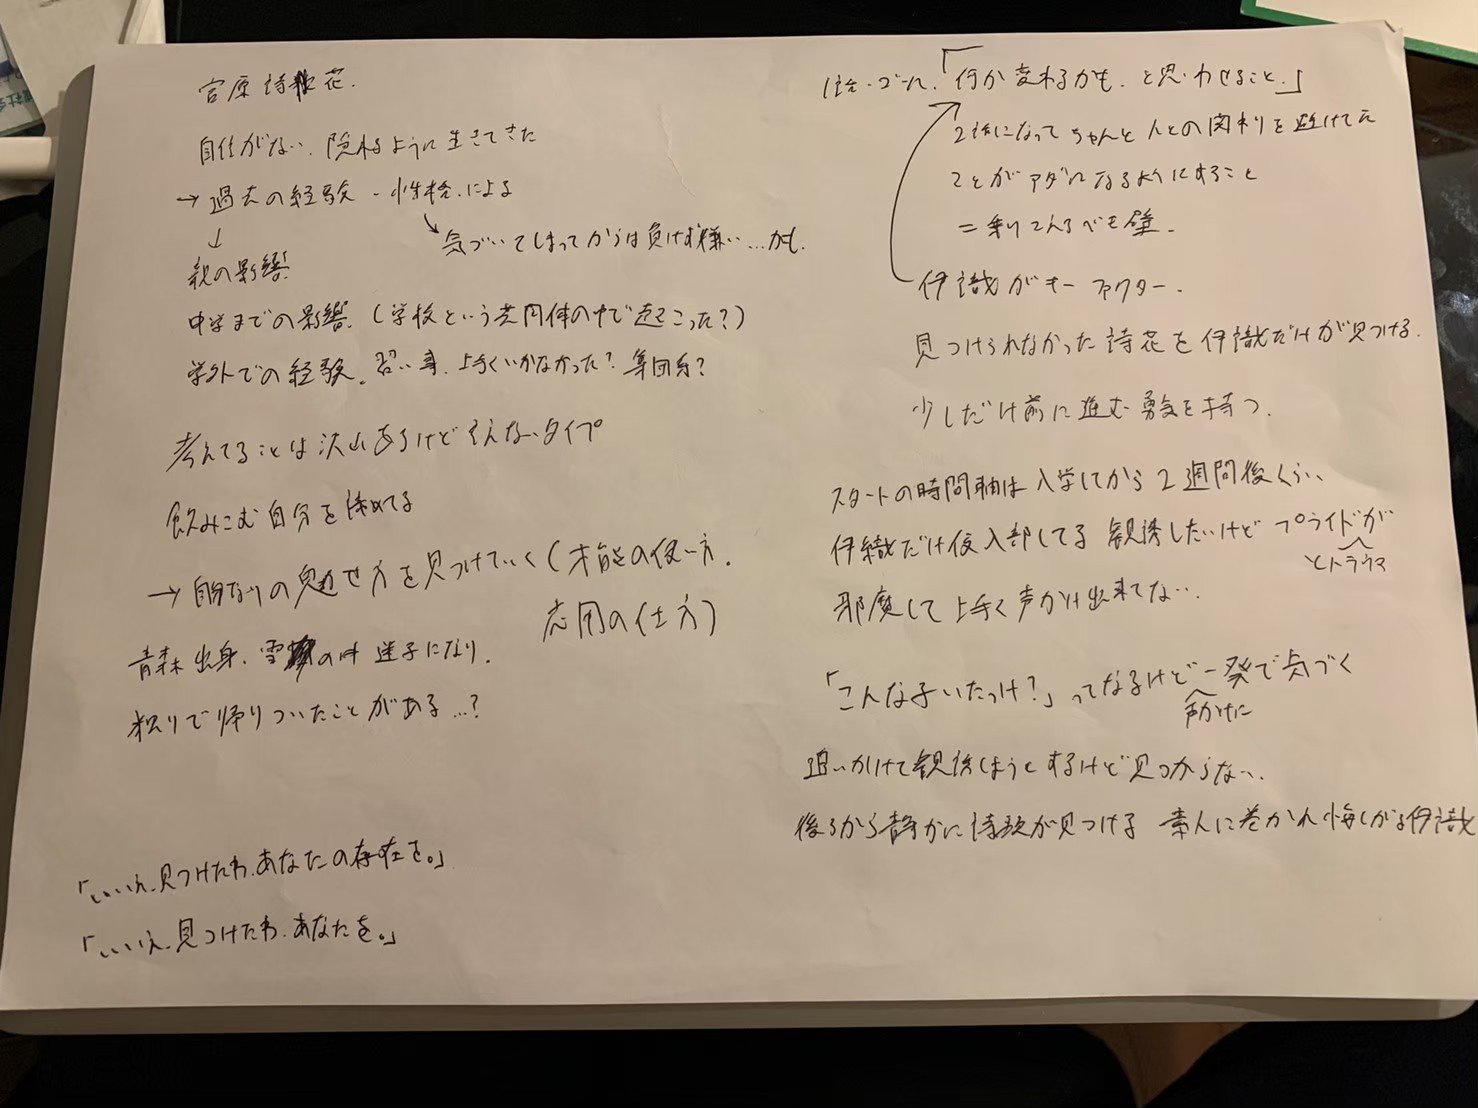 宮原 詩歌花.
自信がない、隠れるように生きてきた
→過去の経験 - 性格.による
↓
↘気づいてしまってからは負けず嫌い…かも.
親の影響
中学までの影響.(学校という共同体の中で起こった?)
学外での経験.習い事.上手くいかなかった?集団系?
考えてることは沢山あるけど言えないタイプ
飲みこむ自分を諦めてる
→自分なりの魅せ方を見つけていく(才能の使い方.
応用の仕方)
青森出身.雪の中 迷子になり.
独りで帰りついたことがある…?
「いいえ.見つけたわ.あなたの存在を。」
「いいえ.見つけたわ.あなたを。」
1話.ゴール.「何か変わるかも.と思わせること.」
2話になってちゃんと人との関わりを避けてた
ことがアダになるようにすること
=乗りこえるべき壁.
伊織がキーファクター.
見つけられなかった詩花を伊織だけが見つける.
少しだけ前に進む勇気を持つ.
スタートの時間軸は入学してから2週間後くらい、
伊織だけ仮入部してる 勧誘したいけどプライドが
とトラウマ
邪魔して上手く声かけ出来てない.
「こんな子いたっけ?」ってなるけど一発で気づく
声かけに
追いかけて勧誘しようとするけど見つからない.
後ろから静かに詩歌が見つける 素人に巻かれ悔しがる伊織